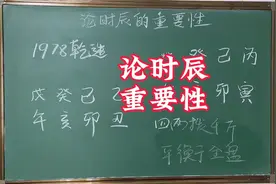 论时辰的重要性
1978乾造
癸己丙
戊癸己乙
卯寅
午亥卯丑
四两拨千斤
平衡于全盘
论时辰
重要性